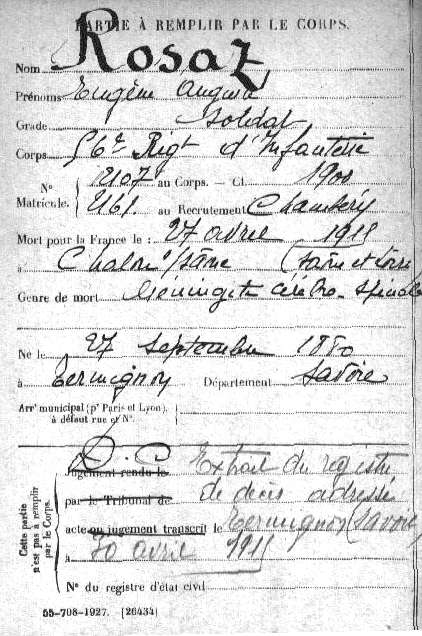 PARTIE À REMPLIR PAR LE CORPS.
Nom Rosaz
Prénoms Eugène Auguste
Grade Soldat
Corps 56e Rigt d'Infanterie
N° Matricule. 12107 au Corps. — Cl. 1900
1161. au Recrutement Chambéry
Mort pour la France le : 27 avril 1915
à Chalon s/Saône (Saône et Loire
Genre de mort Méningite Cérébro-Spinale
Né le 27 septembre 1880
à Termignon Département Savoie
Arrt municipal (pr Paris et Lyon), à défaut rue et N°.
Cette partie n'est pas à remplir par le Corps.
D.C
Jugement rendu le Extrait du registre
par le Tribunal de de décès adressé
acte ou jugement transcrit le Termignon (Savoie
à 30 avril 1915
N° du registre d'état civil
55-708-1927. [26434]